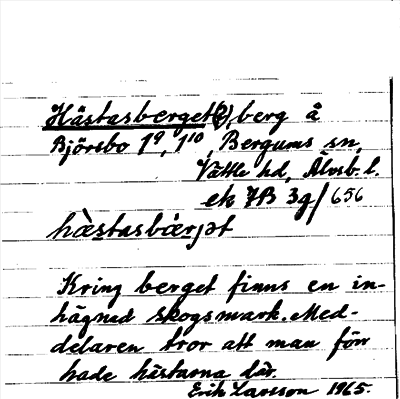 Hästasberget(?) berg å
Björsbo 1⁹, 1¹⁰, Bergums sn,
Vättle hd, Älvsb. l.
ek 7B 3g/656
hàstasbærjət
Kring berget finns en in-
hägnad skogsmark. Med-
delaren tror att man förr
hade hästarna där.
Erik Larsson 1965.